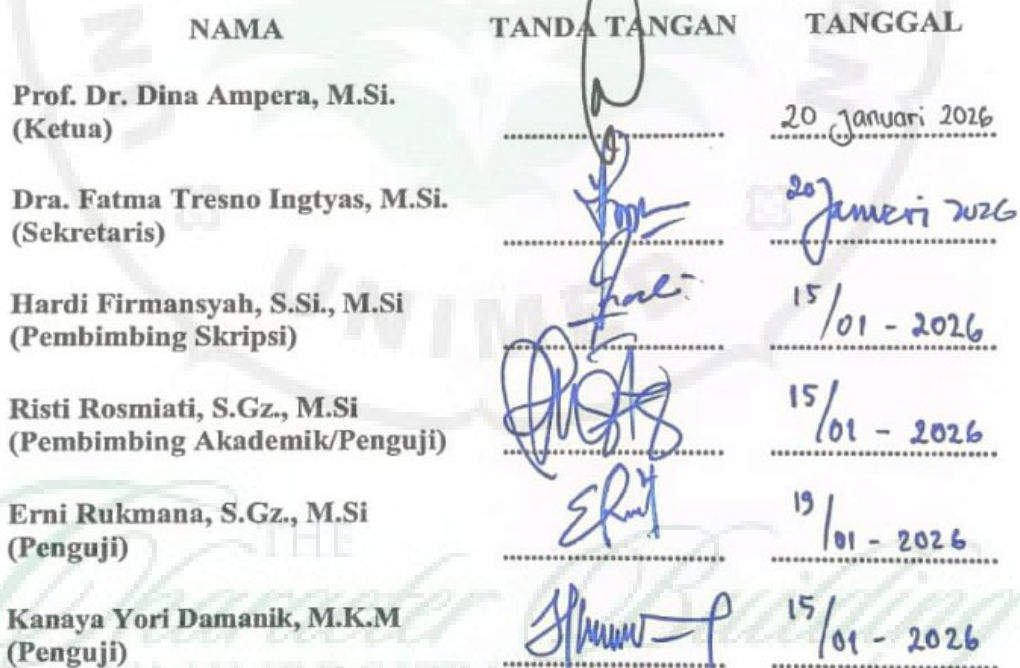 NAMA TANDA TANGAN TANGGAL
Prof. Dr. Dina Ampera, M.Si.
(Ketua) 20 Januari 2026
Dra. Fatma Tresno Ingtyas, M.Si.
(Sekretaris) 20 Januari 2026
Hardi Firmansyah, S.Si., M.Si
(Pembimbing Skripsi) 15/01 - 2026
Risti Rosmiati, S.Gz., M.Si
(Pembimbing Akademik/Penguji) 15/01 - 2026
Erni Rukmana, S.Gz., M.Si
(Penguji) 19/01 - 2026
Kanaya Yori Damanik, M.K.M
(Penguji) 15/01 - 2026
UNIMED
THE
Character Building